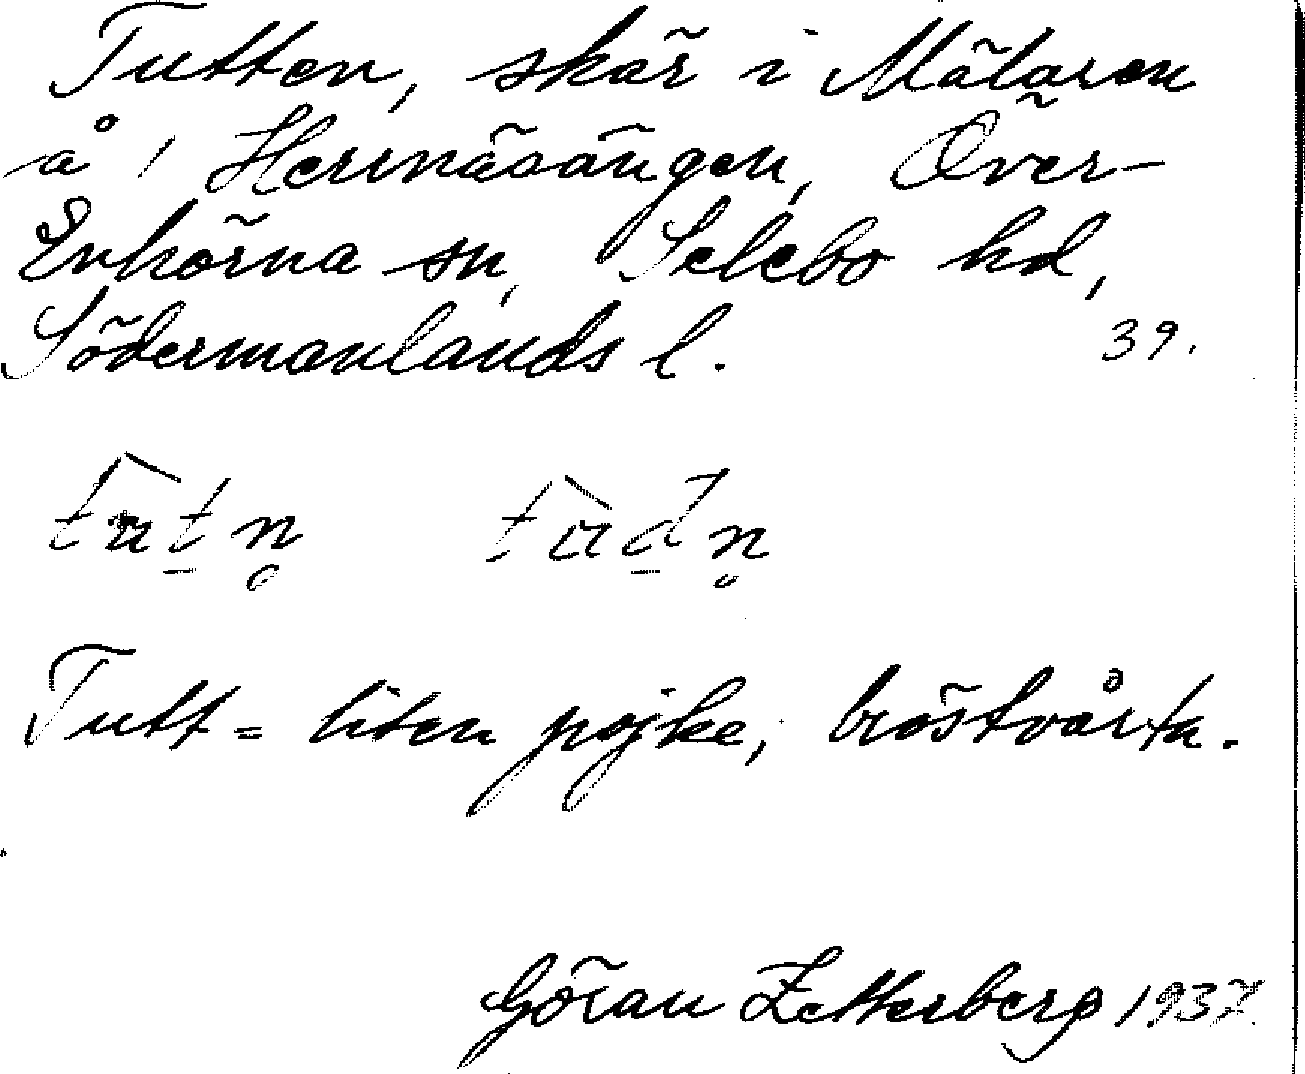 Tutten, skär i Mälaren
å / Hermäsängen, Över-
Enhörna sn, Selebo hd,
Södermanlands l. 39.
tut̲n̥ tud̲n̥
Tutt = liten pojke; bröstvårta.
Göran Zetterberg 1937.